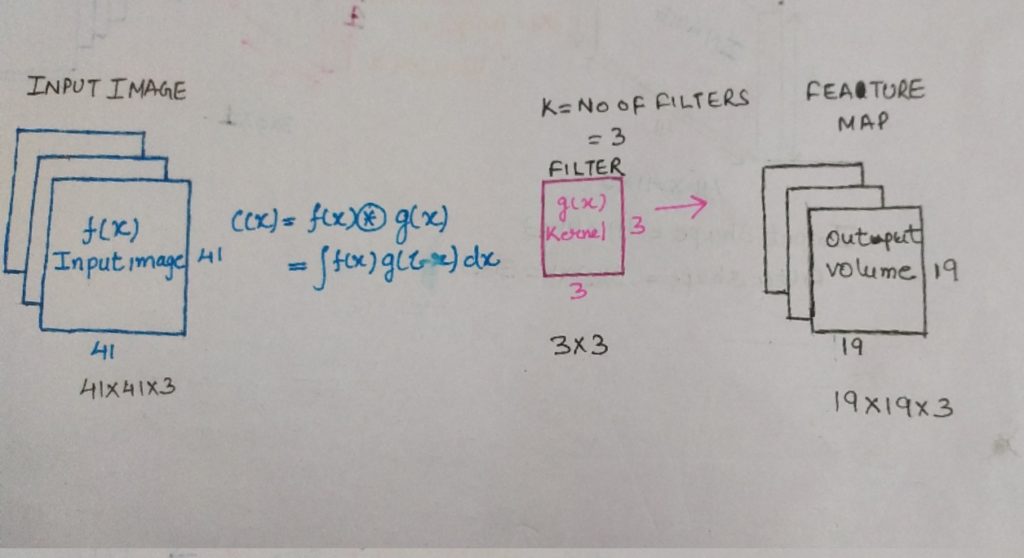 INPUT IMAGE
f(x)
Input image
41
41
41x41x3
C(x) = f(x) * g(x)
= ∫f(x) g(τ-x) dx
K = NO OF FILTERS
= 3
FILTER
g(x)
Kernel
3
3
3x3
FEATURE
MAP
output
volume
19
19
19x19x3